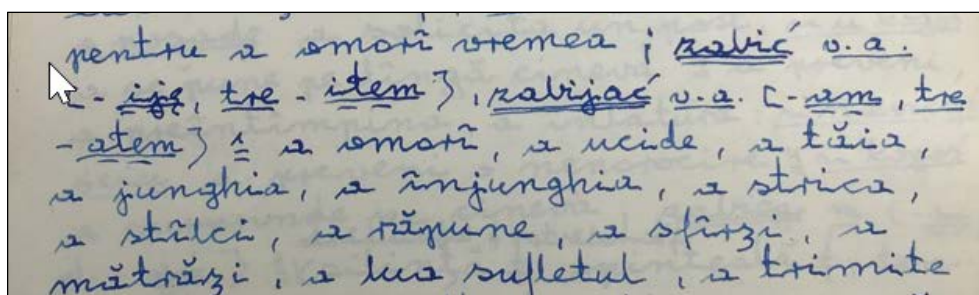 pentru a omorî vremea ; zabić v.a.
[-iję, tre-item], zabijać v.a. [-am, tre
-atem] = a omorî, a ucide, a tăia,
a junghia, a înjunghia, a strica,
a stîlci, a răpune, a sfîrzi, a
mătrăzi, a lua sufletul, a trimite